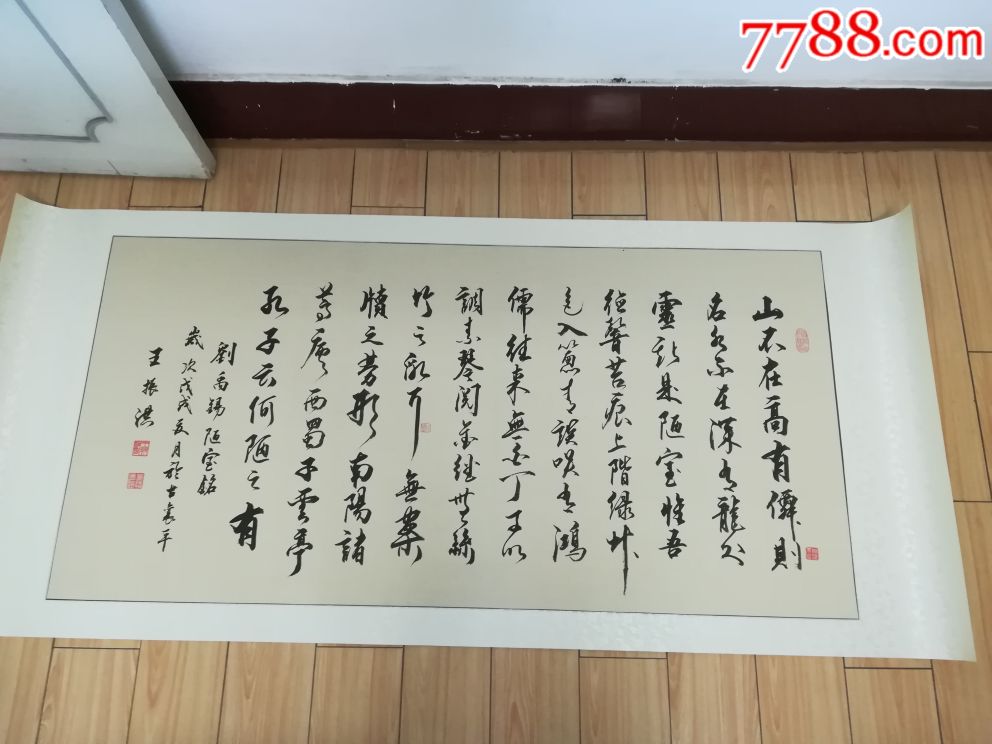 7788.com
山不在高有僊則
名水不在深有龍則
靈斯是陋室惟吾
德馨苔痕上階绿艸
色入簾青談咲有鴻
儒往來無白丁可以
調素琴閱金經無絲
竹之亂耳無案
牘之勞形南陽諸
葛廬西蜀子雲亭
孔子云何陋之
有
劉禹錫陋室銘
歲次戊戌夏月於古襄平
王振洪